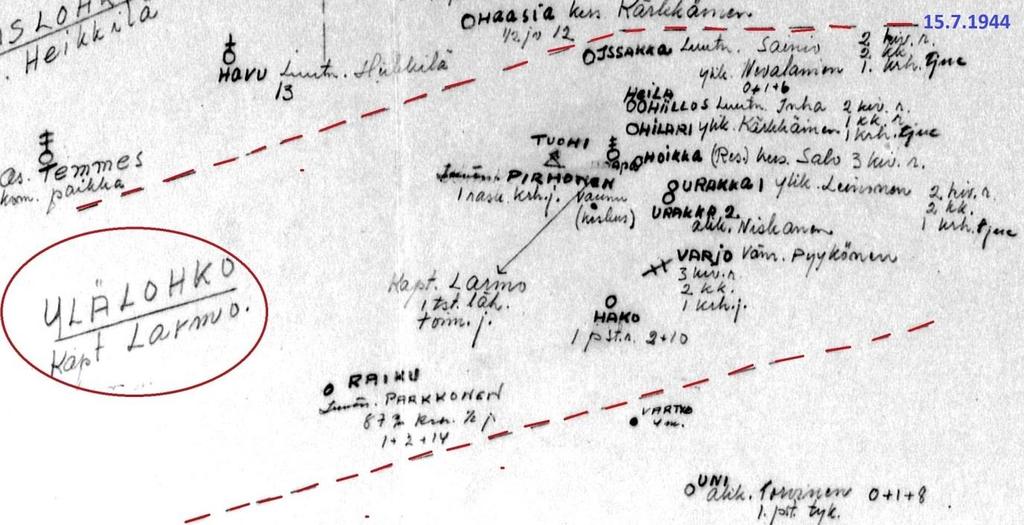 Heikkilä
OHAASIA kers. Kärkkäinen
1/2 jv 12
15.7.1944
HAVU Luutn. Heikkilä
13
ISSAKKA Luutn. Sainio 2 kiv. r.
2. kk.
ylik. Nevalainen 1. krh. tjue
0+1+6
HEILA
HIILLOS Luutn. Inha 2 kiv. r.
1 kk. r.
HILARI ylik. Kärkkäinen 1 krh. tjue
TUOHI
HOIKKA (Res) kers. Salo 3 kiv. r.
As. Temmes
kom. paikka
PIRHONEN
1 rask. krh. j.
URAKKA 1 ylik. Leinonen 2. kiv. r.
2. kk.
1 krh. tjue
URAKKA 2.
alik. Niskanen
VARJO Vänr. Pyykönen
3 kiv. r.
2 kk.
1 krh. j.
Kapt. Larmo
1 tst. läh.
toim. j.
YLÄLOHKO
Kapt Larmo.
HAKO
1 pst. r. 2+10
RAIKU
PARKKONEN
1+2+14
VARTIO
4 m.
UNI
alik. Torvinen 0+1+8
1. pst. tyk.